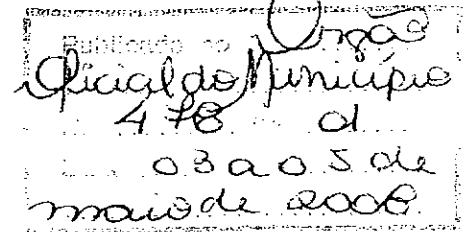 Publicado no Orgão
Oficial do Município
478 d
03 a 05 de
maio de 2006